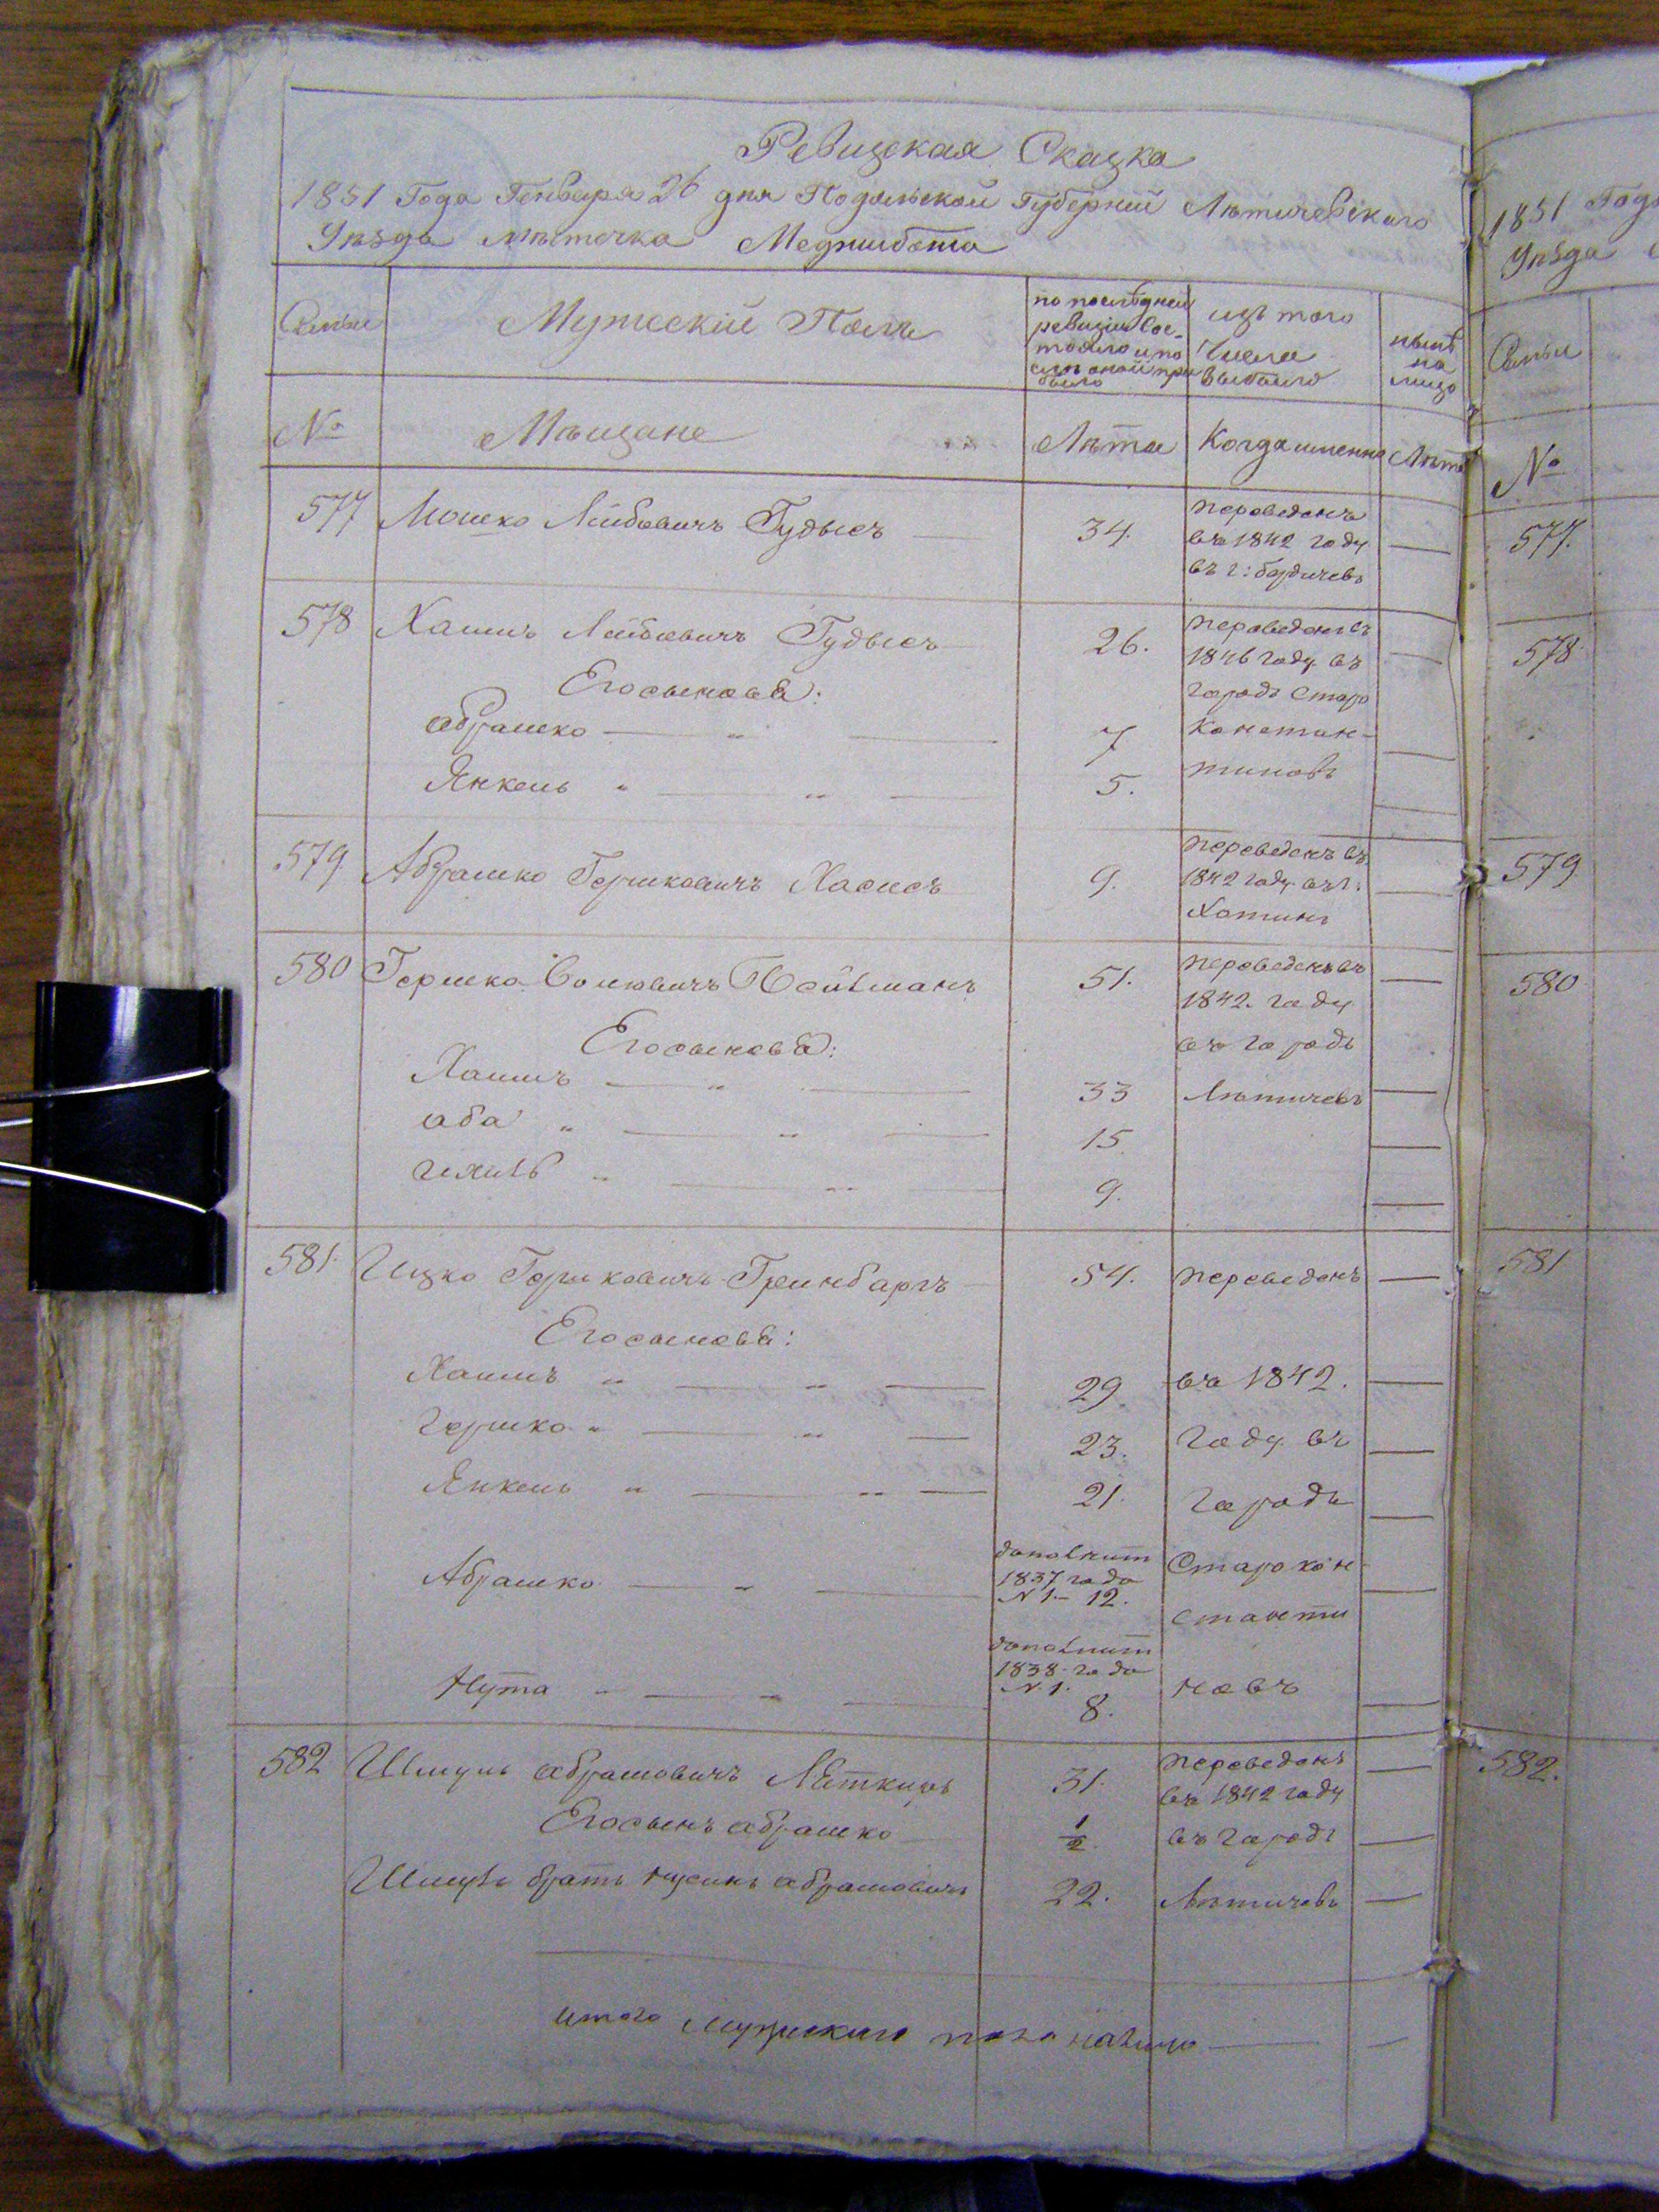 Ревизская Сказка
1851 Года Генваря 26 дня Подольской Губерніи Лѣтичевского
Уѣзда мѣстечка Меджибожа
Семьи
Мужескій Полъ
по последней
ревизіи сос-
тояло и по
слѣ оной при
было
изъ того
Числа
выбыло
нынѣ
на
лицо
№
Мѣщане
Лѣта
Когда именно
Лѣта
577
Мошко Лейбовичъ Гудысъ
34.
переведенъ
въ 1842 году
въ г: бердичевъ
578
Хаимъ Лейбовичъ Гудысъ
26.
переведенъ въ
1846 году въ
городъ Старо
Констан-
тиновъ
Его сыновья:
абрашко
7
Янкель
5.
579
Абрашко Гершковичъ Хасисъ
9.
переведенъ въ
1842 году въ г:
Хотинъ
580
Гершко Волковичъ
51.
переведенъ въ
1842. году
въ городъ
Лѣтичевъ
Его сыновья:
Хаимъ
33
аба
15.
ихиль
9.
581
Ицко Гершковичъ Гринбаргъ
54.
переведенъ
Его сыновья:
Хаимъ
29
въ 1842.
гершко
23.
году въ
Янкель
21.
городъ
Абрашко
дополнит
1837 года
№ 1.- 12.
Старокон-
станти
Нута
дополнит
1838 года
№ 1.
8.
новъ
582
Шмуль абрамовичъ
31.
переведенъ
въ 1842 году
въ городъ
Лѣтичевъ
Его сынъ абрашко
1/2
Шмуля братъ нусинъ абрамовичъ
22.
итого мужескаго пола налицо
1851 Года
Уѣзда
Семьи
№
577.
578
579
580
581
582.